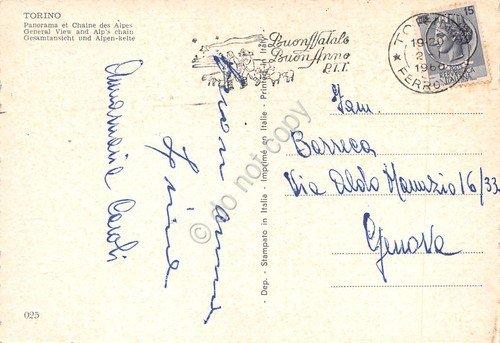 TORINO
Panorama et Chaine des Alpes
General View and Alp's chain
Gesamtansicht und Alpen-kette
Buon Natale
Buon Anno
P.T.T.
TORINO
FERROVIA
15
Fam.
Barreca
Via Aldo Manuzio 16/33
Genova
Buon anno
Annamaria Caroli
- Dep. - Stampato in Italia - Imprimé en Italie - Printed in Italy
025
do not copy